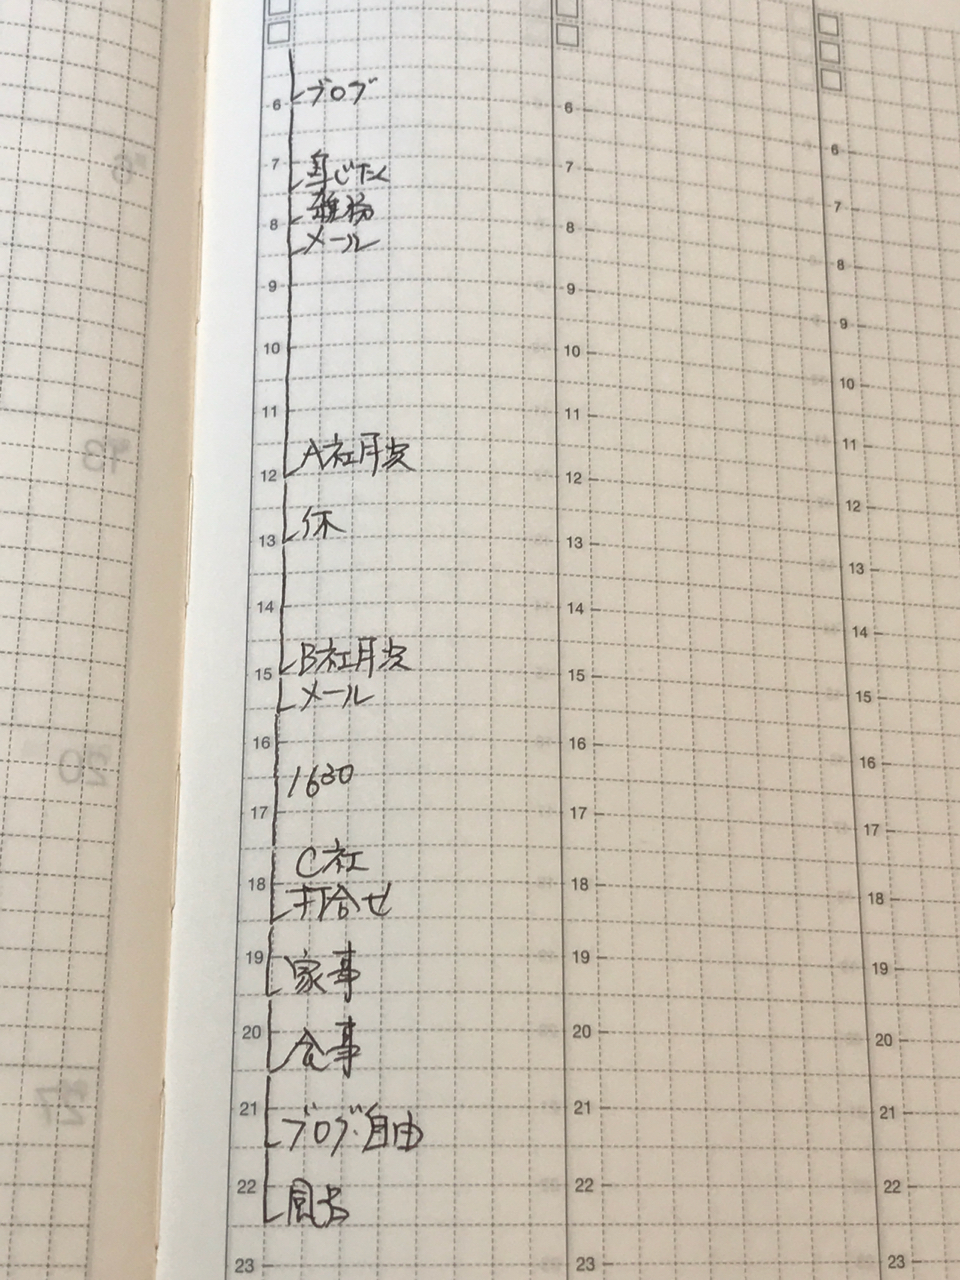 6 ブログ
7
身じたく
雑務
8
メール
9
10
11
A社月次
12
休
13
14
B社月次
15
メール
16
1630
17
C社
18
打合せ
19
家事
20
食事
21
ブログ・自由
22
風呂
23
6
7
8
9
10
11
12
13
14
15
16
17
18
19
20
21
22
23
6
7
8
9
10
11
12
13
14
15
16
17
18
19
20
21
22
23